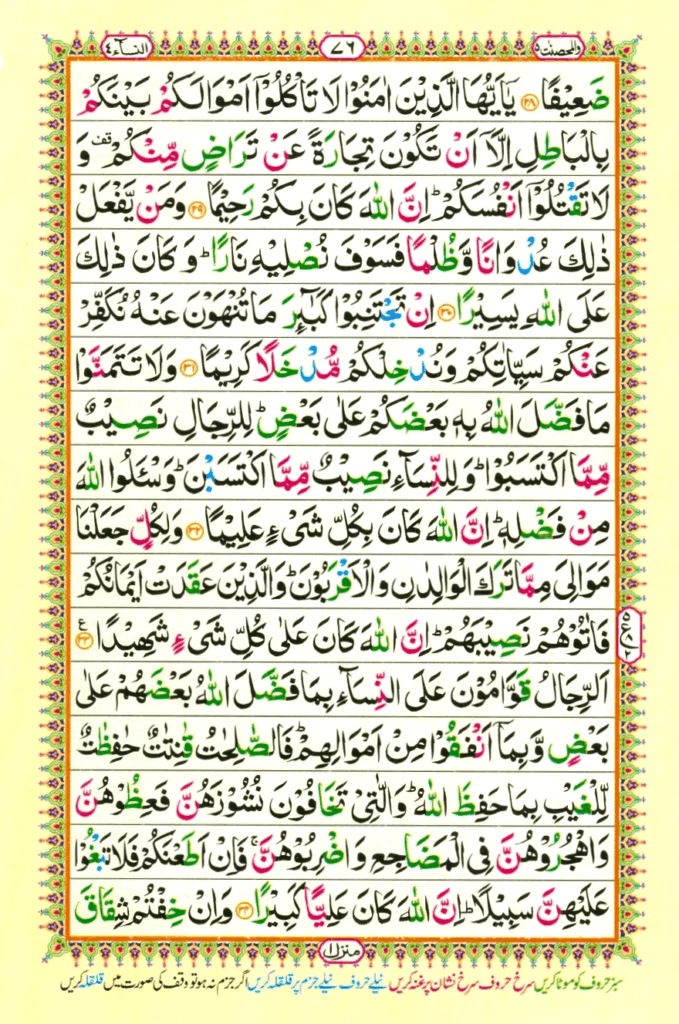 والمحصنت ٥
٧٦
النساء ٤
ضَعِيْفًا ﴿٢٨﴾ يٰۤاَيُّهَا الَّذِيْنَ اٰمَنُوْا لَا تَاْكُلُوْۤا اَمْوَالَكُمْ بَيْنَكُمْ
بِالْبَاطِلِ اِلَّاۤ اَنْ تَكُوْنَ تِجَارَةً عَنْ تَرَاضٍ مِّنْكُمْ ۫ وَ
لَا تَقْتُلُوْۤا اَنْفُسَكُمْ ؕ اِنَّ اللّٰهَ كَانَ بِكُمْ رَحِيْمًا ﴿٢٩﴾ وَمَنْ يَّفْعَلْ
ذٰلِكَ عُدْوَانًا وَّظُلْمًا فَسَوْفَ نُصْلِيْهِ نَارًا ؕ وَكَانَ ذٰلِكَ
عَلَى اللّٰهِ يَسِيْرًا ﴿٣٠﴾ اِنْ تَجْتَنِبُوْا كَبَآئِرَ مَا تُنْهَوْنَ عَنْهُ نُكَفِّرْ
عَنْكُمْ سَيِّاٰتِكُمْ وَنُدْخِلْكُمْ مُّدْخَلًا كَرِيْمًا ﴿٣١﴾ وَلَا تَتَمَنَّوْا
مَا فَضَّلَ اللّٰهُ بِهٖ بَعْضَكُمْ عَلٰى بَعْضٍ ؕ لِلرِّجَالِ نَصِيْبٌ
مِّمَّا اكْتَسَبُوْا ؕ وَلِلنِّسَآءِ نَصِيْبٌ مِّمَّا اكْتَسَبْنَ ؕ وَسْـَٔلُوا اللّٰهَ
مِنْ فَضْلِهٖ ؕ اِنَّ اللّٰهَ كَانَ بِكُلِّ شَىْءٍ عَلِيْمًا ﴿٣٢﴾ وَلِكُلٍّ جَعَلْنَا
مَوَالِىَ مِمَّا تَرَكَ الْوَالِدٰنِ وَالْاَقْرَبُوْنَ ؕ وَالَّذِيْنَ عَقَدَتْ اَيْمَانُكُمْ
فَاٰتُوْهُمْ نَصِيْبَهُمْ ؕ اِنَّ اللّٰهَ كَانَ عَلٰى كُلِّ شَىْءٍ شَهِيْدًا ﴿٣٣﴾ ع
اَلرِّجَالُ قَوَّامُوْنَ عَلَى النِّسَآءِ بِمَا فَضَّلَ اللّٰهُ بَعْضَهُمْ عَلٰى
بَعْضٍ وَّبِمَاۤ اَنْفَقُوْا مِنْ اَمْوَالِهِمْ ؕ فَالصّٰلِحٰتُ قٰنِتٰتٌ حٰفِظٰتٌ
لِّلْغَيْبِ بِمَا حَفِظَ اللّٰهُ ؕ وَالّٰتِىْ تَخَافُوْنَ نُشُوْزَهُنَّ فَعِظُوْهُنَّ
وَاهْجُرُوْهُنَّ فِى الْمَضَاجِعِ وَاضْرِبُوْهُنَّ ۚ فَاِنْ اَطَعْنَكُمْ فَلَا تَبْغُوْا
عَلَيْهِنَّ سَبِيْلًا ؕ اِنَّ اللّٰهَ كَانَ عَلِيًّا كَبِيْرًا ﴿٣٤﴾ وَاِنْ خِفْتُمْ شِقَاقَ
منزل ١
سبز حروف کو موٹا کریں سرخ حروف سرخ نشان پر غنہ کریں نیلے حروف نیلے جزم پر قلقلہ کریں اگر جزم نہ ہو تو وقف کی صورت میں قلقلہ کریں